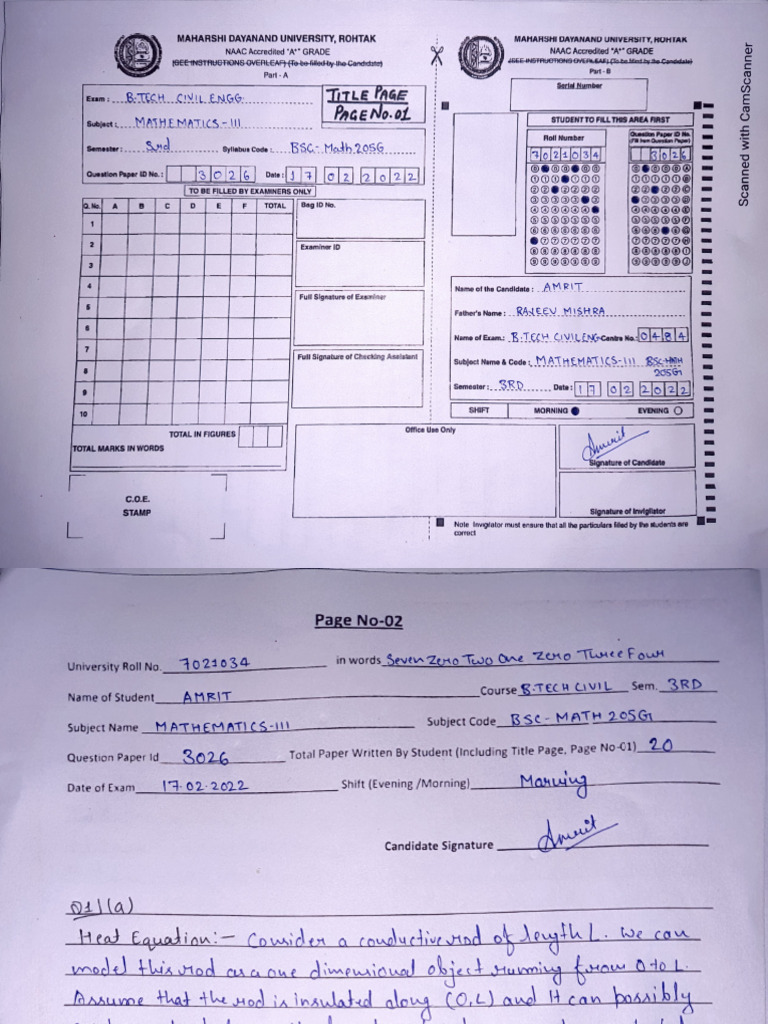 MAHARSHI DAYANAND UNIVERSITY, ROHTAK
NAAC Accredited "A+" GRADE
(SEE INSTRUCTIONS OVERLEAF) (To be filled by the Candidate)
Part - A
Exam : B.TECH CIVIL ENGG
TITLE PAGE
PAGE NO.01
Subject : MATHEMATICS-III
Semester : 3rd Syllabus Code : BSC-Math205G
Question Paper ID No. : 3026 Date : 17 02 2022
TO BE FILLED BY EXAMINERS ONLY
Q. No. A B C D E F TOTAL
1
2
3
4
5
6
7
8
9
10
TOTAL IN FIGURES
TOTAL MARKS IN WORDS
Bag ID No.
Examiner ID
Full Signature of Examiner
Full Signature of Checking Assistant
C.O.E.
STAMP
MAHARSHI DAYANAND UNIVERSITY, ROHTAK
NAAC Accredited "A+" GRADE
(SEE INSTRUCTIONS OVERLEAF) (To be filled by the Candidate)
Part - B
Serial Number
STUDENT TO FILL THIS AREA FIRST
Roll Number
7021034
Question Paper ID No.
(Fill from Question Paper)
3026
Name of the Candidate : AMRIT
Father's Name : RAJEEV MISHRA
Name of Exam.: B.TECH CIVIL ENG Centre No.: 0484
Subject Name & Code : MATHEMATICS-III BSC-MATH
205G
Semester : 3RD Date : 17 02 2022
SHIFT MORNING EVENING
Office Use Only
Amrit
Signature of Candidate
Signature of Invigilator
Note Invigilator must ensure that all the particulars filled by the students are
correct
Scanned with CamScanner
Page No-02
University Roll No. 7021034 in words Seven Zero Two One Zero Three Four
Name of Student AMRIT Course B.TECH CIVIL Sem. 3RD
Subject Name MATHEMATICS-III Subject Code BSC-MATH 205G
Question Paper Id 3026 Total Paper Written By Student (Including Title Page, Page No-01) 20
Date of Exam 17.02.2022 Shift (Evening /Morning) Morning
Candidate Signature Amrit
Q1|(a)
Heat Equation:- Consider a conductive rod of length L. We can
model this rod as a one dimensional object running from 0 to L.
Assume that the rod is insulated along (0,L) and it can possibly